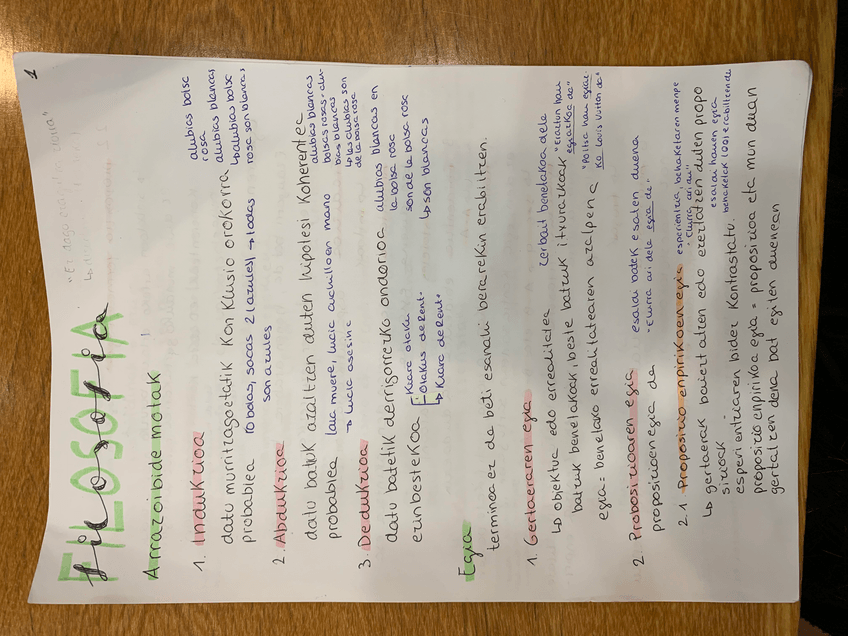 1
FILOSOFIA
filosofia
Arrazoibide motak
1. Indukzioa
alubias bolsc
rosa
datu murritzagoetatik Konklusio orokorra
alubias blancas
↳alubias bolsc
probablea
10 bolas, sacas 2 (azules) → todas
rosa son blancas
son azules
2. Abdukzioa
datu batzuk azaltzen duten hipotesi Koherentea
alubias blancas
bolsas rosas → alu-
bias blancas
probablea
laia muere, lucia cuchillo en mano
↳las alubias son
de la bolsa rosa
→ lucia asesina
3. Dedukzioa
datu batetik derrigorrezko ondorioa
alubias blancas en
la bolsa rosa
ezinbestekoa
Kiara otaku
son de la bolsa rosa
Otakus de Rent.
↳ son blancas
↳ Kiara de Rent.
Egia
terminoa ez da beti esanahi berarekin erabiltzen.
1. Gertaeraren egia
zerbait benetakoa dela
↳ objektua edo errealitatea
batzuk benetakoak, beste batzuk itxurazkoak
"Eraztun hau
egiazkoa da"
egia = benetako errealitatearen azalpena
"Poltsa hau egiaz-
ko Louis Vuitton da"
2. Proposizioaren egia
esaldi batek esaten duena
proposizioen egia da
"Elurra ari dela egia da"
2.1 Proposizio enpirikoen egia
esperientzia, behaketaren menpe
"Elurra ari du"
↳ gertaerak baieztatzen edo ezeztatzen dulen propo
sizioak
esaldi hauen egia
behaketek (use) erabiltzen da
esperientziaren bidez Kontrastatu.
proposizio enpirikoa egia = proposizioa eta mundan
gertatzen dena bat egiten duenean